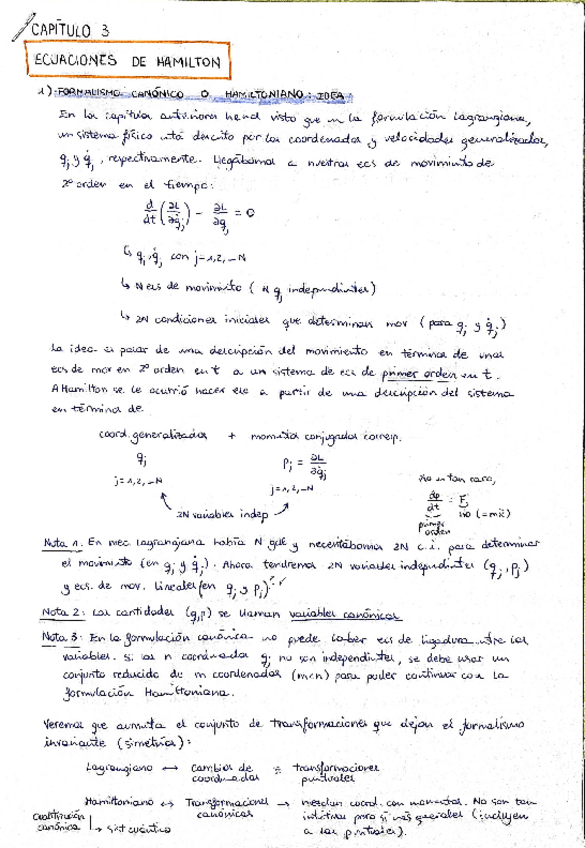 CAPÍTULO 3
ECUACIONES DE HAMILTON
1) FORMALISMO CANÓNICO O HAMILTONIANO: IDEA
En los capítulos anteriores hemos visto que en la formulación Lagrangiana,
un sistema físico está descrito por las coordenadas y velocidades generalizadas,
qj y q̇j, respectivamente. Llegábamos a nuestras ecs de movimiento de
2º orden en el tiempo:
d/dt (∂L/∂q̇j) - ∂L/∂qj = 0
↳ qj, q̇j con j=1,2,...N
↳ N ecs de movimiento (N qj independientes)
↳ 2N condiciones iniciales que determinan mov (para qj y q̇j)
La idea es pasar de una descripción del movimiento en términos de unas
ecs de mov en 2º orden en t a un sistema de ecs de primer orden en t.
A Hamilton se le ocurrió hacer eso a partir de una descripción del sistema
en términos de
coord. generalizadas + momentos conjugados corresp.
qj pj = ∂L/∂q̇j
j=1,2,...N j=1,2,...N
2N variables indep
No es tan raro,
dp/dt = F
primer orden
no (=mẍ)
Nota 1. En mec Lagrangiana había N gdl y necesitábamos 2N c.i. para determinar
el movimiento (en qj y q̇j). Ahora tendremos 2N variables independientes (qj, pj)
y ecs. de mov. lineales (en qj y pj)
Nota 2: Las cantidades (q,p) se llaman variables canónicas
Nota 3: En la formulación canónica no puede haber ecs de ligadura entre las
variables. Si las n coordenadas qj no son independientes, se debe usar un
conjunto reducido de m coordenadas (m<n) para poder continuar con la
formulación Hamiltoniana.
Veremos que aumenta el conjunto de transformaciones que dejan el formalismo
invariante (simetrías):
Lagrangiano ↔ cambios de coordenadas ≡ transformaciones puntuales
Hamiltoniano ↔ Transformaciones canónicas → mezclan coord. con momentos. No son tan
intuitivas pero sí más generales (incluyen
a las puntuales).
cuantización canónica ↳ sist cuántico